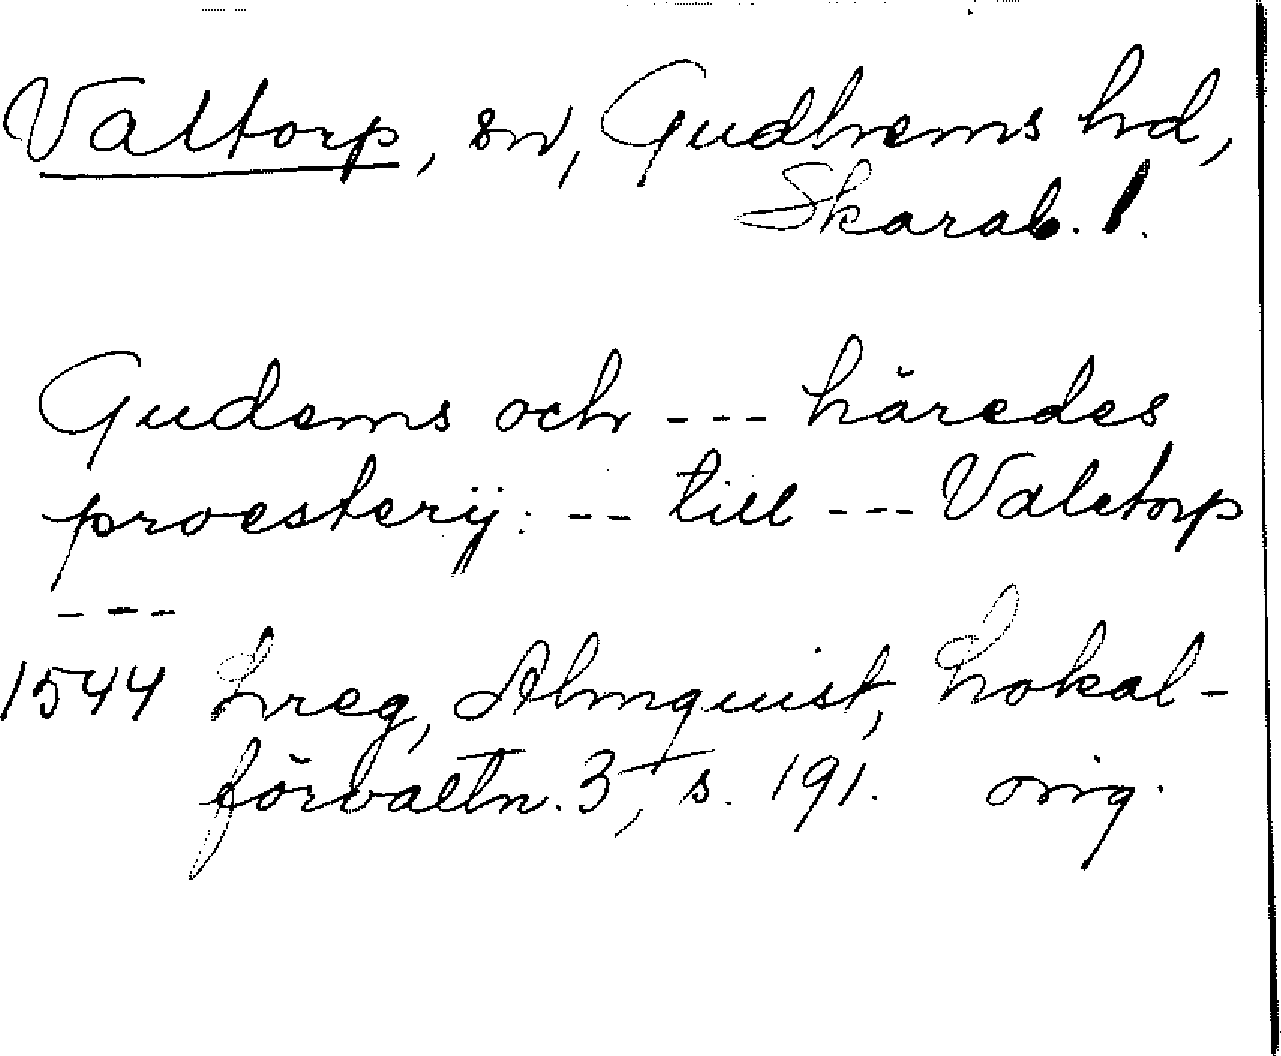 Valtorp, sn, Gudhems hd,
Skarab. l.
Gudems och --- häredes
proesterij: -- till --- Valetorp
---
1544 Lreg, Almquist, Lokal-
förvaltn. 3, s. 191. orig.